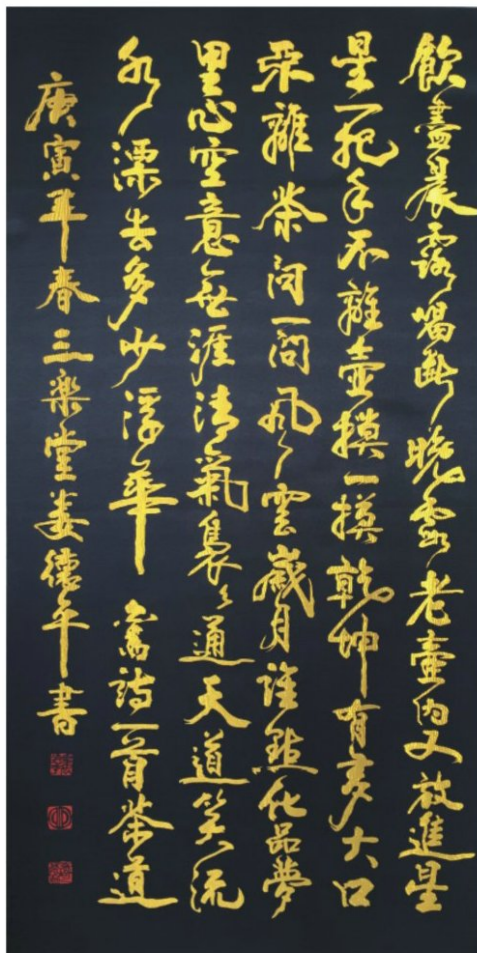 飲盡晨露喝斷晚霞老壺內又放進星
星一把手不離壺摸一摸乾坤有多大口
不離茶问一问風雲歲月誰點化品夢
里心空意無涯清氣裊々通天道笑流
水漂去多少浮華 舊詩一首茶道
庚寅年春三楽堂娄德平書